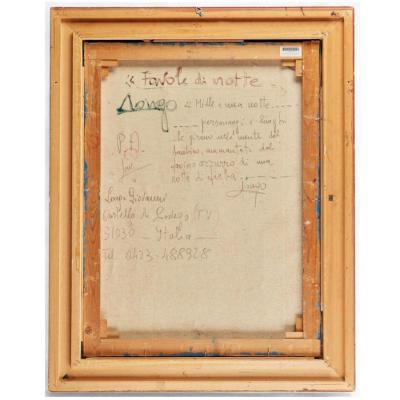 " Favole di notte
Longo " Mille e una notte ----
---- personaggi e luoghi
che girano nella mente del
bambino, ammantati dal
fascino azzurro di una
notte di
Longo
P.D.
Longo Giovanni
Castello di Godego (TV)
31030 - Italia -
Tel. 0423-468928